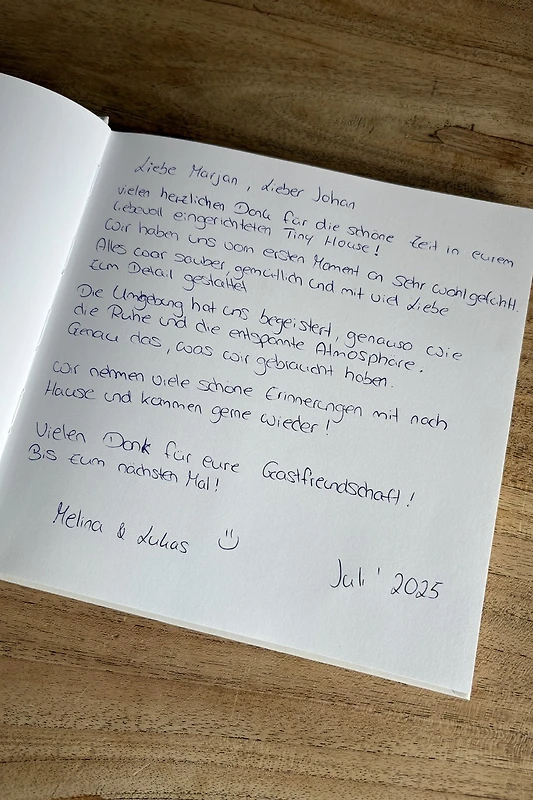 Liebe Marjan, Lieber Johan
vielen herzlichen Dank für die schöne Zeit in eurem
liebevoll eingerichteten Tiny House!
Wir haben uns vom ersten Moment an sehr wohlgefühlt.
Alles war sauber, gemütlich und mit viel Liebe
zum Detail gestaltet
Die Umgebung hat uns begeistert, genauso wie
die Ruhe und die entspannte Atmosphäre.
Genau das, was wir gebraucht haben.
Wir nehmen viele schöne Erinnerungen mit nach
Hause und kommen gerne wieder!
Vielen Dank für eure Gastfreundschaft!
Bis zum nächsten Mal!
Melina & Lukas :)
Juli ' 2025